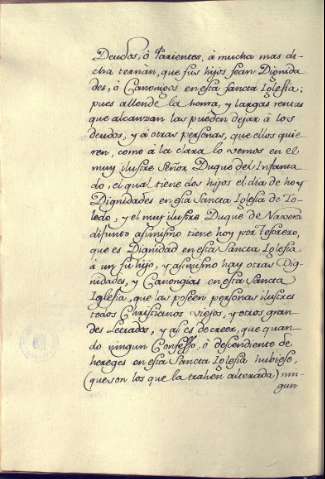 Deudos, ó Parientes, á mucha mas di-
cha ternàn, que sus hijos sean Dignida
des, ó Canonigos en esta sancta Iglesia;
pues allende la honra, y largas rentas
que alcanzan las pueden dejar á los
deudos, y á otras personas, que ellos quie
ren, como á la clara lo vemos en el
muy ilustre Señor Duque del Infanta
do, el qual tiene dos hijos el dia de hoy
Dignidades en esta Sancta Iglesia de To-
ledo, y el muy ilustre Duque de Naxera
difunto asimismo tiene hoy por Tesorero,
que es Dignidad en esta Sancta Iglesia
á un su hijo, y asimismo hay otras Dig-
nidades, y Canongias en esta Sancta
Iglesia, que las poseen personas ilustres
todos Christianos viejos, y otros gran-
des Letrados, y asi es de creer, que quan-
do ningun Confesso, ó descendiente de
hereges en esta Sancta Iglesia hubiese,
(que son los que la trahen alterada) nin-
gun